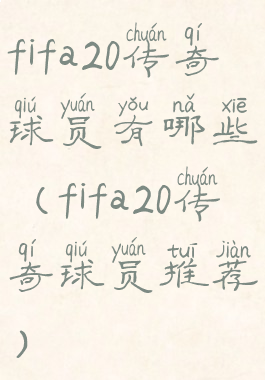 chuán qí
fifa20传奇
qiú yuán yǒu nǎ xiē
球员有哪些
chuán
（fifa20传
qí qiú yuán tuī jiàn
奇球员推荐
）